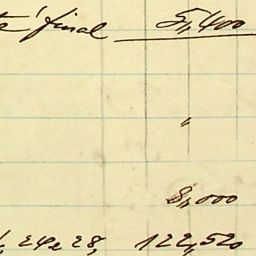 té final 5,400
"
8,000
, 24 e 28, 122,520